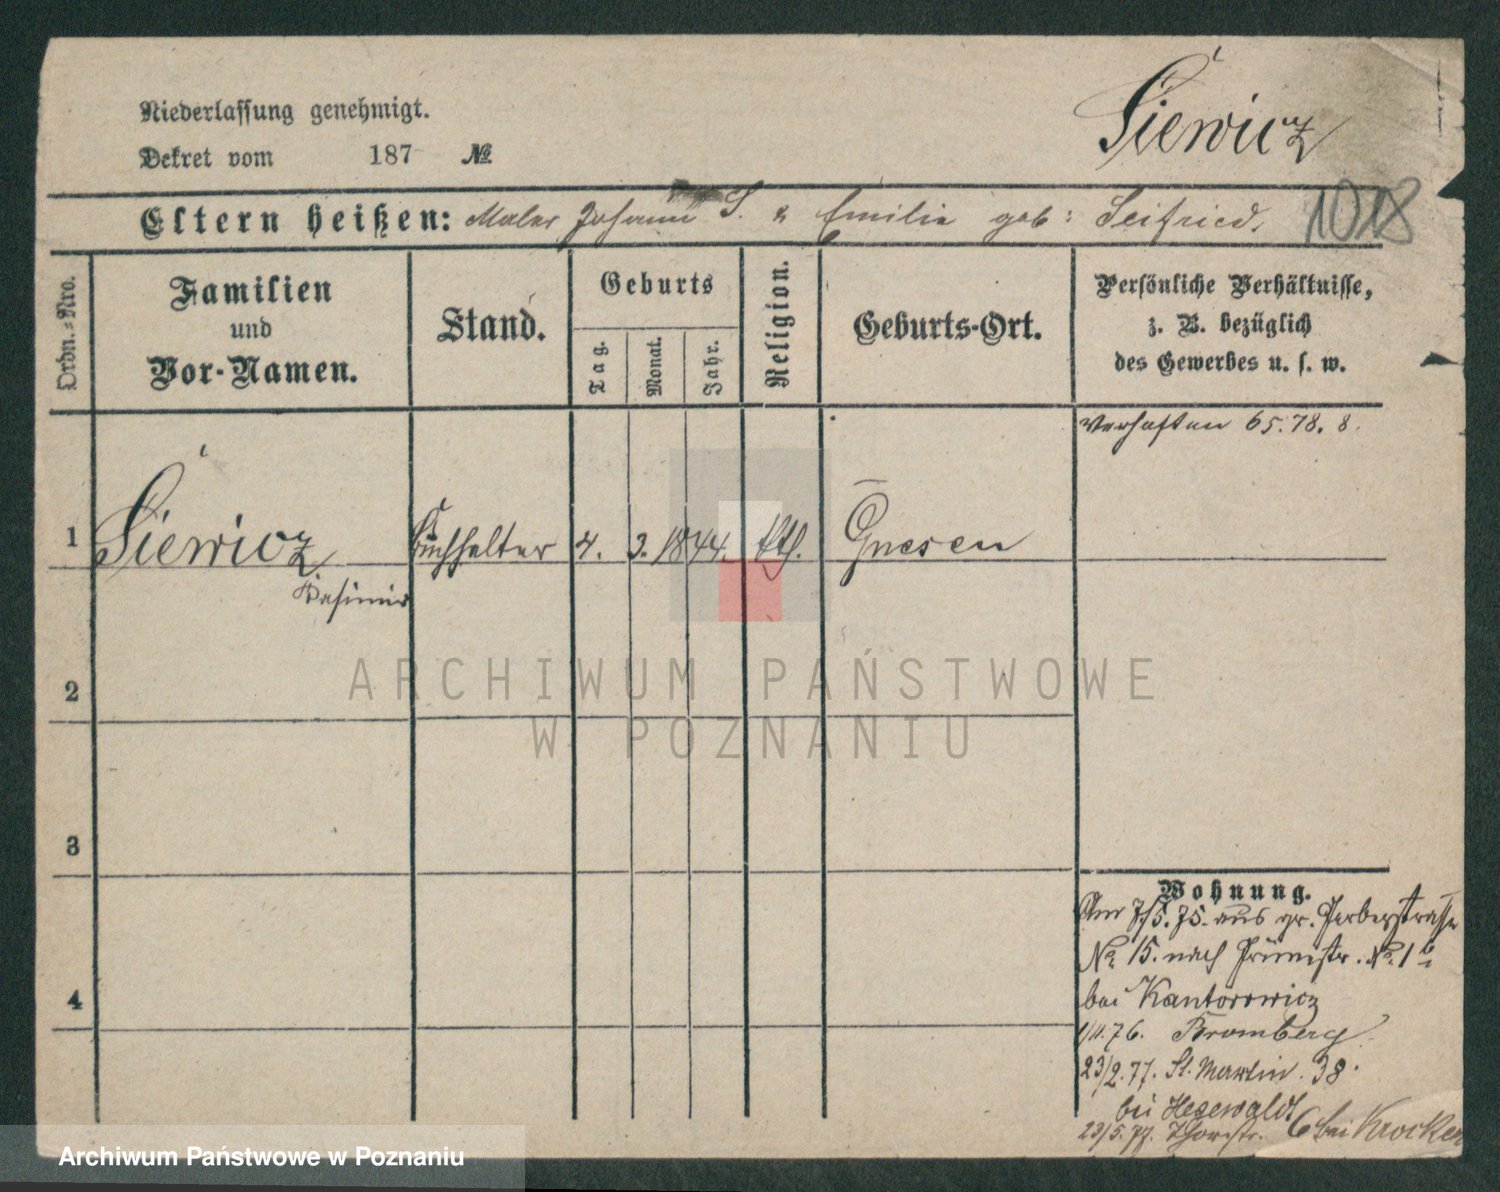 Niederlassung genehmigt.
Dekret vom 187 №
Siewicz
Eltern heißen: Maler Johann S. & Emilie geb: Seifried.
1018
Ordn.=Nro.
Familien
und
Vor-Namen.
Stand.
Geburts
Tag.
Monat.
Jahr.
Religion.
Geburts-Ort.
Persönliche Verhältnisse,
z. B. bezüglich
des Gewerbes u. s. w.
Verhaften 65. 78. 8.
1 Siewicz Buchhalter 4. 3. 1844. kth. Gnesen
Kasimir
2
3
4
Wohnung.
Am 7/5. 75. aus gr. Gerberstrasse
No 15. nach Grünestr. No 1
bei Kantorowicz
1/11. 76. Bromberg
23/2. 77. St. Martin. 38.
bei Hesewaldt
23/5. 77. Thorstr. 6 bei Krocker
ARCHIWUM PAŃSTWOWE
W POZNANIU
Archiwum Państwowe w Poznaniu